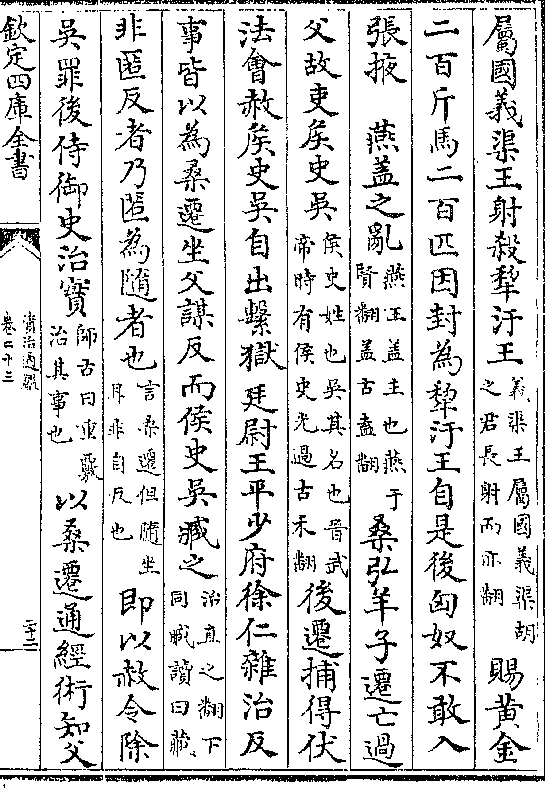 屬國義渠王射殺犂汙王義渠王屬國義渠胡之君長射而亦翻賜黃金
二百斤馬二百匹因封為犂汙王自是後匈奴不敢入
張掖　燕蓋之亂燕王蓋主也燕于賢翻蓋古盍翻桑弘羊子遷亡過
父故吏侯史吳侯史姓也吳其名也晉武帝時有侯史光過古禾翻後遷捕得伏
法會赦侯史吳自出繫獄廷尉王平少府徐仁雜治反
事皆以為桑遷坐父謀反而侯史吳臧之治直之翻下同臧讀曰藏
非匿反者乃匿為隨者也言桑遷但隨坐耳非自反也即以赦令除
吳罪後侍御史治實師古曰重覈治其事也以桑遷通經術知父
欽定四庫全書
資治通鑑
卷二十三